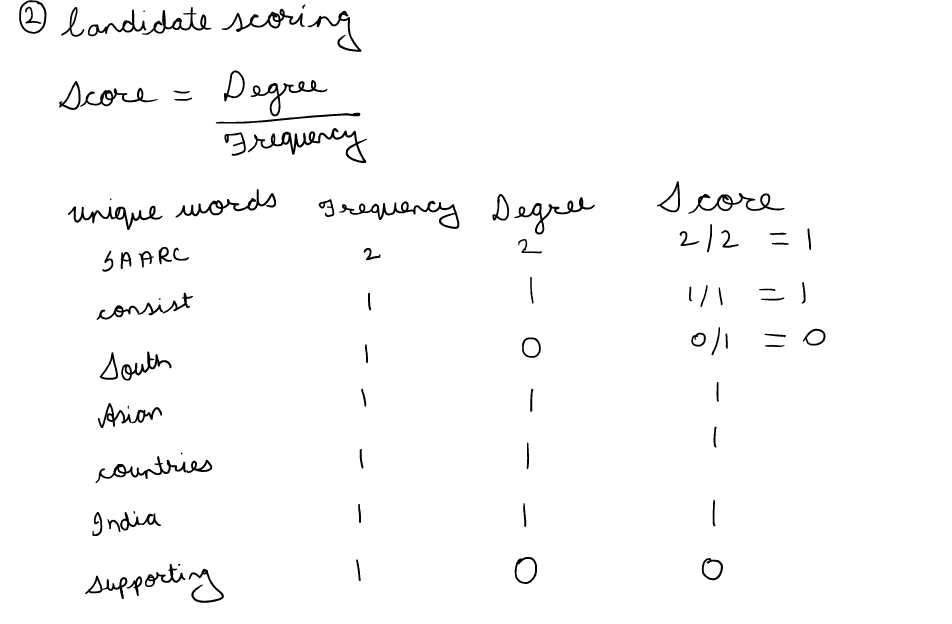 ② Candidate scoring
Score = Degree / Frequency
unique words Frequency Degree Score
SAARC 2 2 2/2 = 1
consist 1 1 1/1 = 1
South 1 0 0/1 = 0
Asian 1 1 1
countries 1 1 1
India 1 1 1
supporting 1 0 0